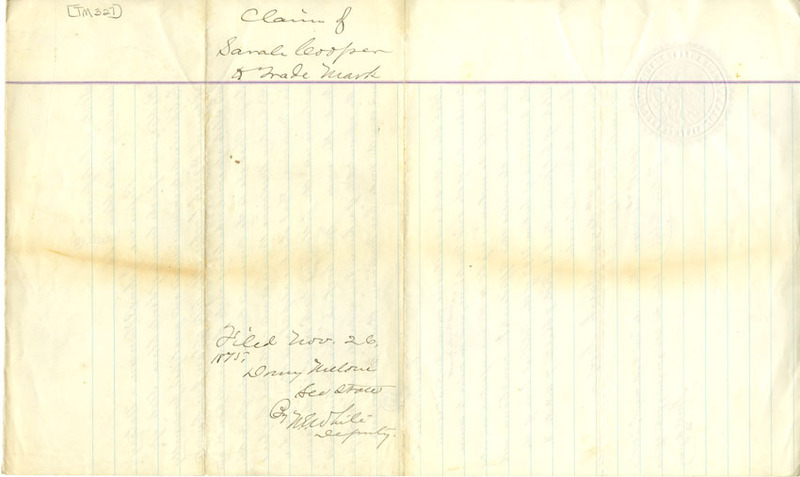 [TM 327]
Claim of
Sarah Cooper
to Trade Mark
Filed Nov. 26,
1875,
Drury Melone
Sec State
By
White
Deputy.